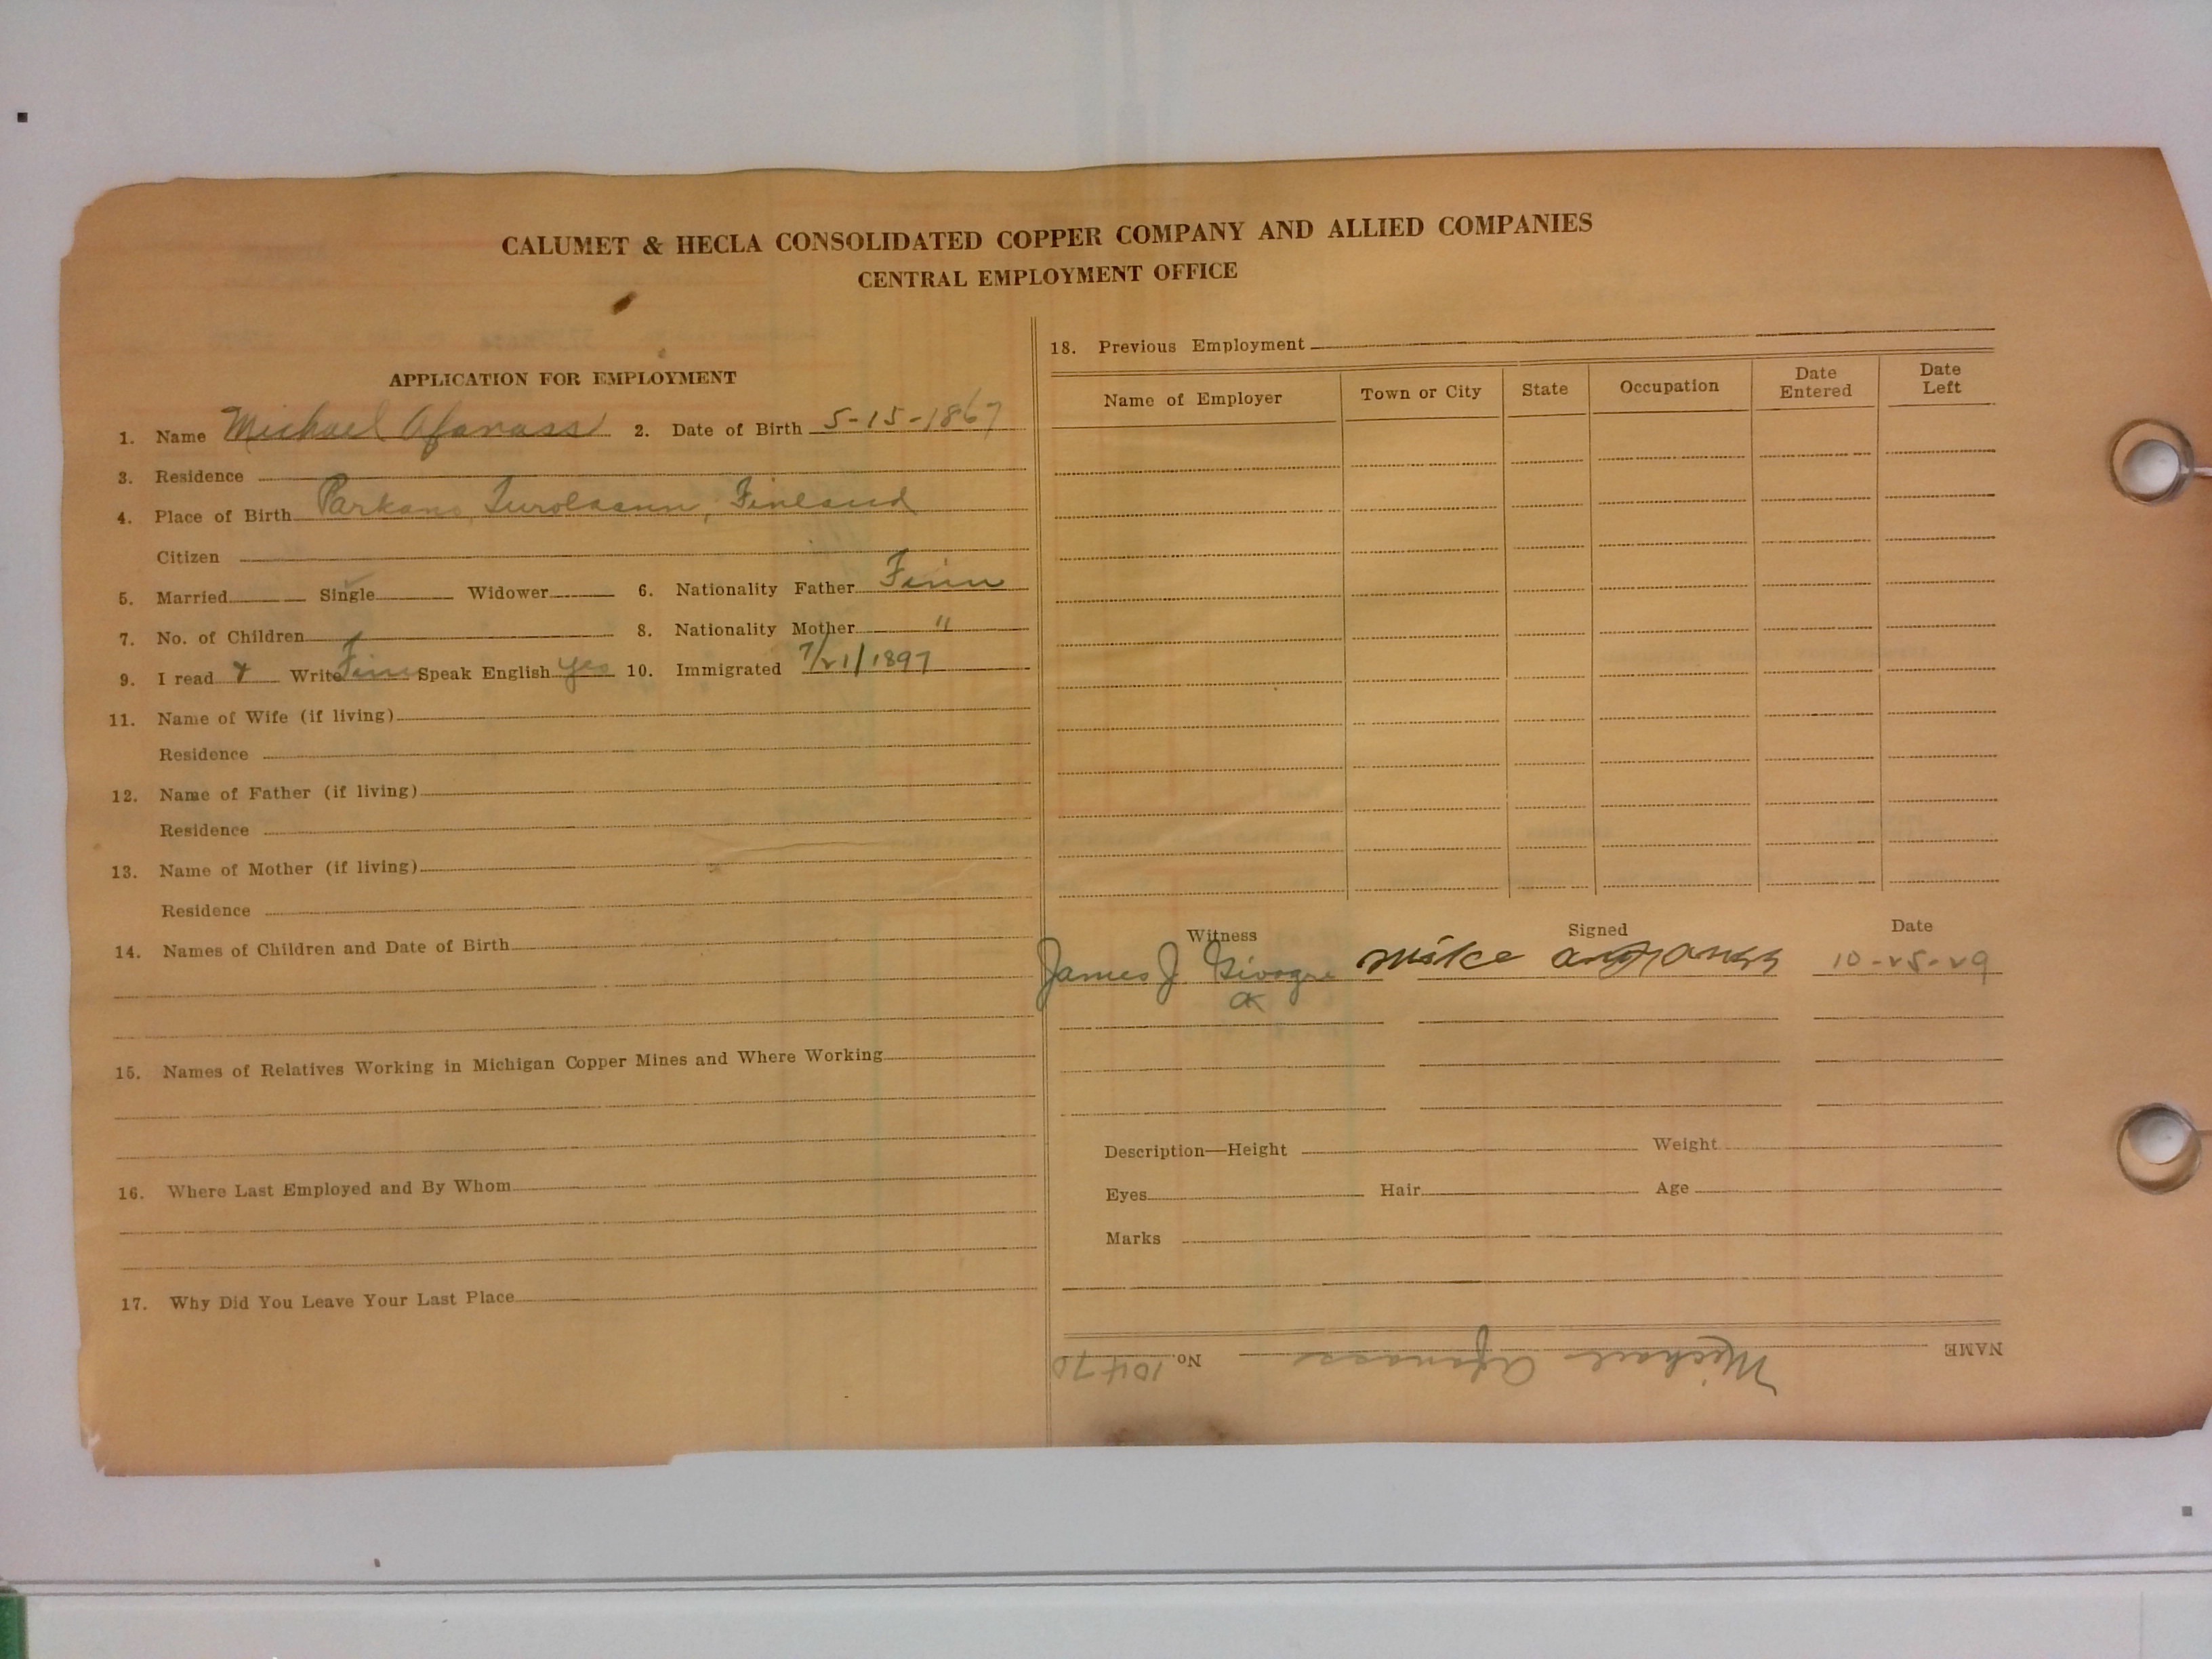 CALUMET & HECLA CONSOLIDATED COPPER COMPANY AND ALLIED COMPANIES
CENTRAL EMPLOYMENT OFFICE
APPLICATION FOR EMPLOYMENT
1. Name Michael Afanass 2. Date of Birth 5-15-1867
3. Residence
4. Place of Birth Parkano, Finland
Citizen
5. Married Single Widower 6. Nationality Father Finn
7. No. of Children 8. Nationality Mother "
9. I read & Write Finn Speak English yes 10. Immigrated 7/21/1897
11. Name of Wife (if living)
Residence
12. Name of Father (if living)
Residence
13. Name of Mother (if living)
Residence
14. Names of Children and Date of Birth
15. Names of Relatives Working in Michigan Copper Mines and Where Working
16. Where Last Employed and By Whom
17. Why Did You Leave Your Last Place
18. Previous Employment
Name of Employer Town or City State Occupation Date Entered Date Left
Witness Signed Date
James J. mike 10-25-29
Description—Height Weight
Eyes Hair Age
Marks
NAME Michael Afanass No. 10470